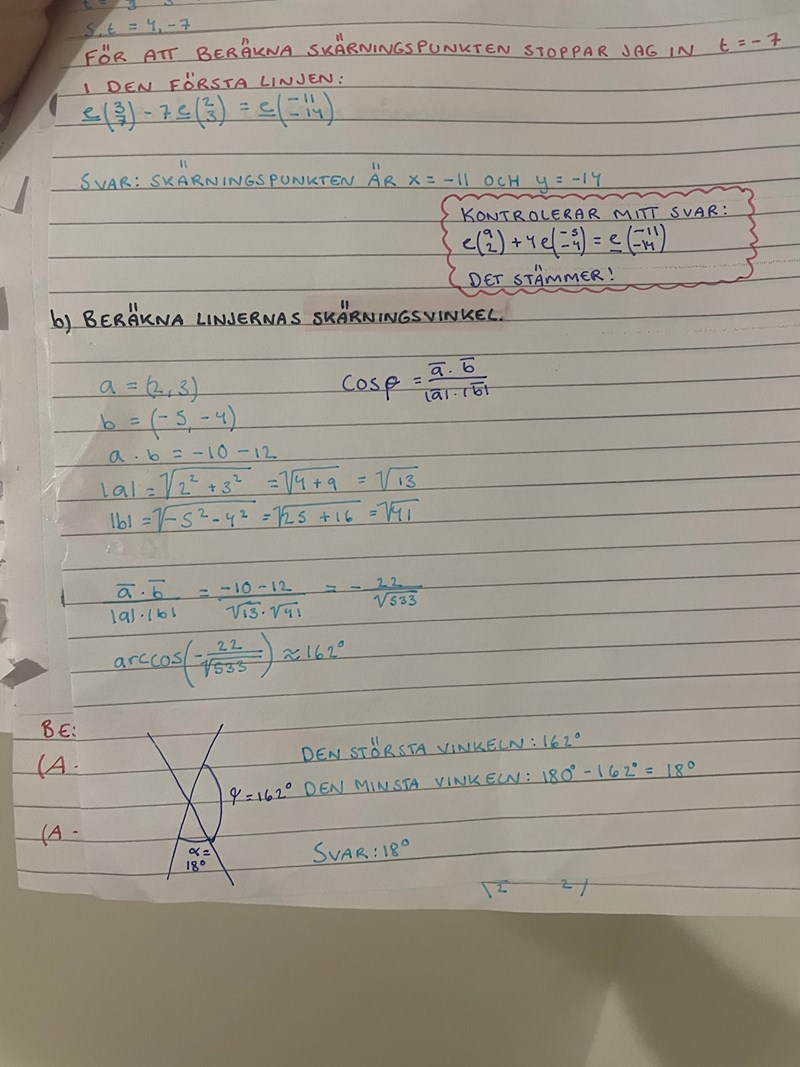 s,t = 4,-7
FÖR ATT BERÄKNA SKÄRNINGSPUNKTEN STOPPAR JAG IN t = -7
I DEN FÖRSTA LINJEN:
e(3 7) - 7e(2 3) = e(-11 -14)
SVAR: SKÄRNINGSPUNKTEN ÄR x = -11 OCH y = -14
KONTROLERAR MITT SVAR:
e(9 2) + 4e(-5 -4) = e(-11 -14)
DET STÄMMER!
b) BERÄKNA LINJERNAS SKÄRNINGSVINKEL.
a = (2,3)
cos φ = a̅ · b̅ / |a̅| · |b̅|
b = (-5,-4)
a · b = -10 - 12
|a| = √2² + 3² = √4 + 9 = √13
|b| = √-5² - 4² = √25 + 16 = √41
a̅ · b̅ / |a| · |b| = -10 - 12 / √13 · √41 = - 22 / √533
arccos(- 22 / √533) ≈ 162°
BE:
(A -
(A -
φ = 162°
α =
18°
DEN STÖRSTA VINKELN: 162°
DEN MINSTA VINKELN: 180° - 162° = 18°
SVAR: 18°